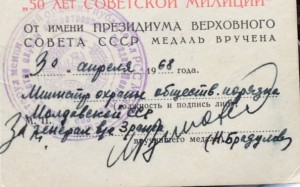 "50 ЛЕТ СОВЕТСКОЙ МИЛИЦИИ"
ОТ ИМЕНИ ПРЕЗИДИУМА ВЕРХОВНОГО
СОВЕТА СССР МЕДАЛЬ ВРУЧЕНА
30 апреля 1968 года.
Министр охраны обществ. порядка
(должность и подпись лица,
Молдавской ССР
М. П.
генерал
вручившего медаль)